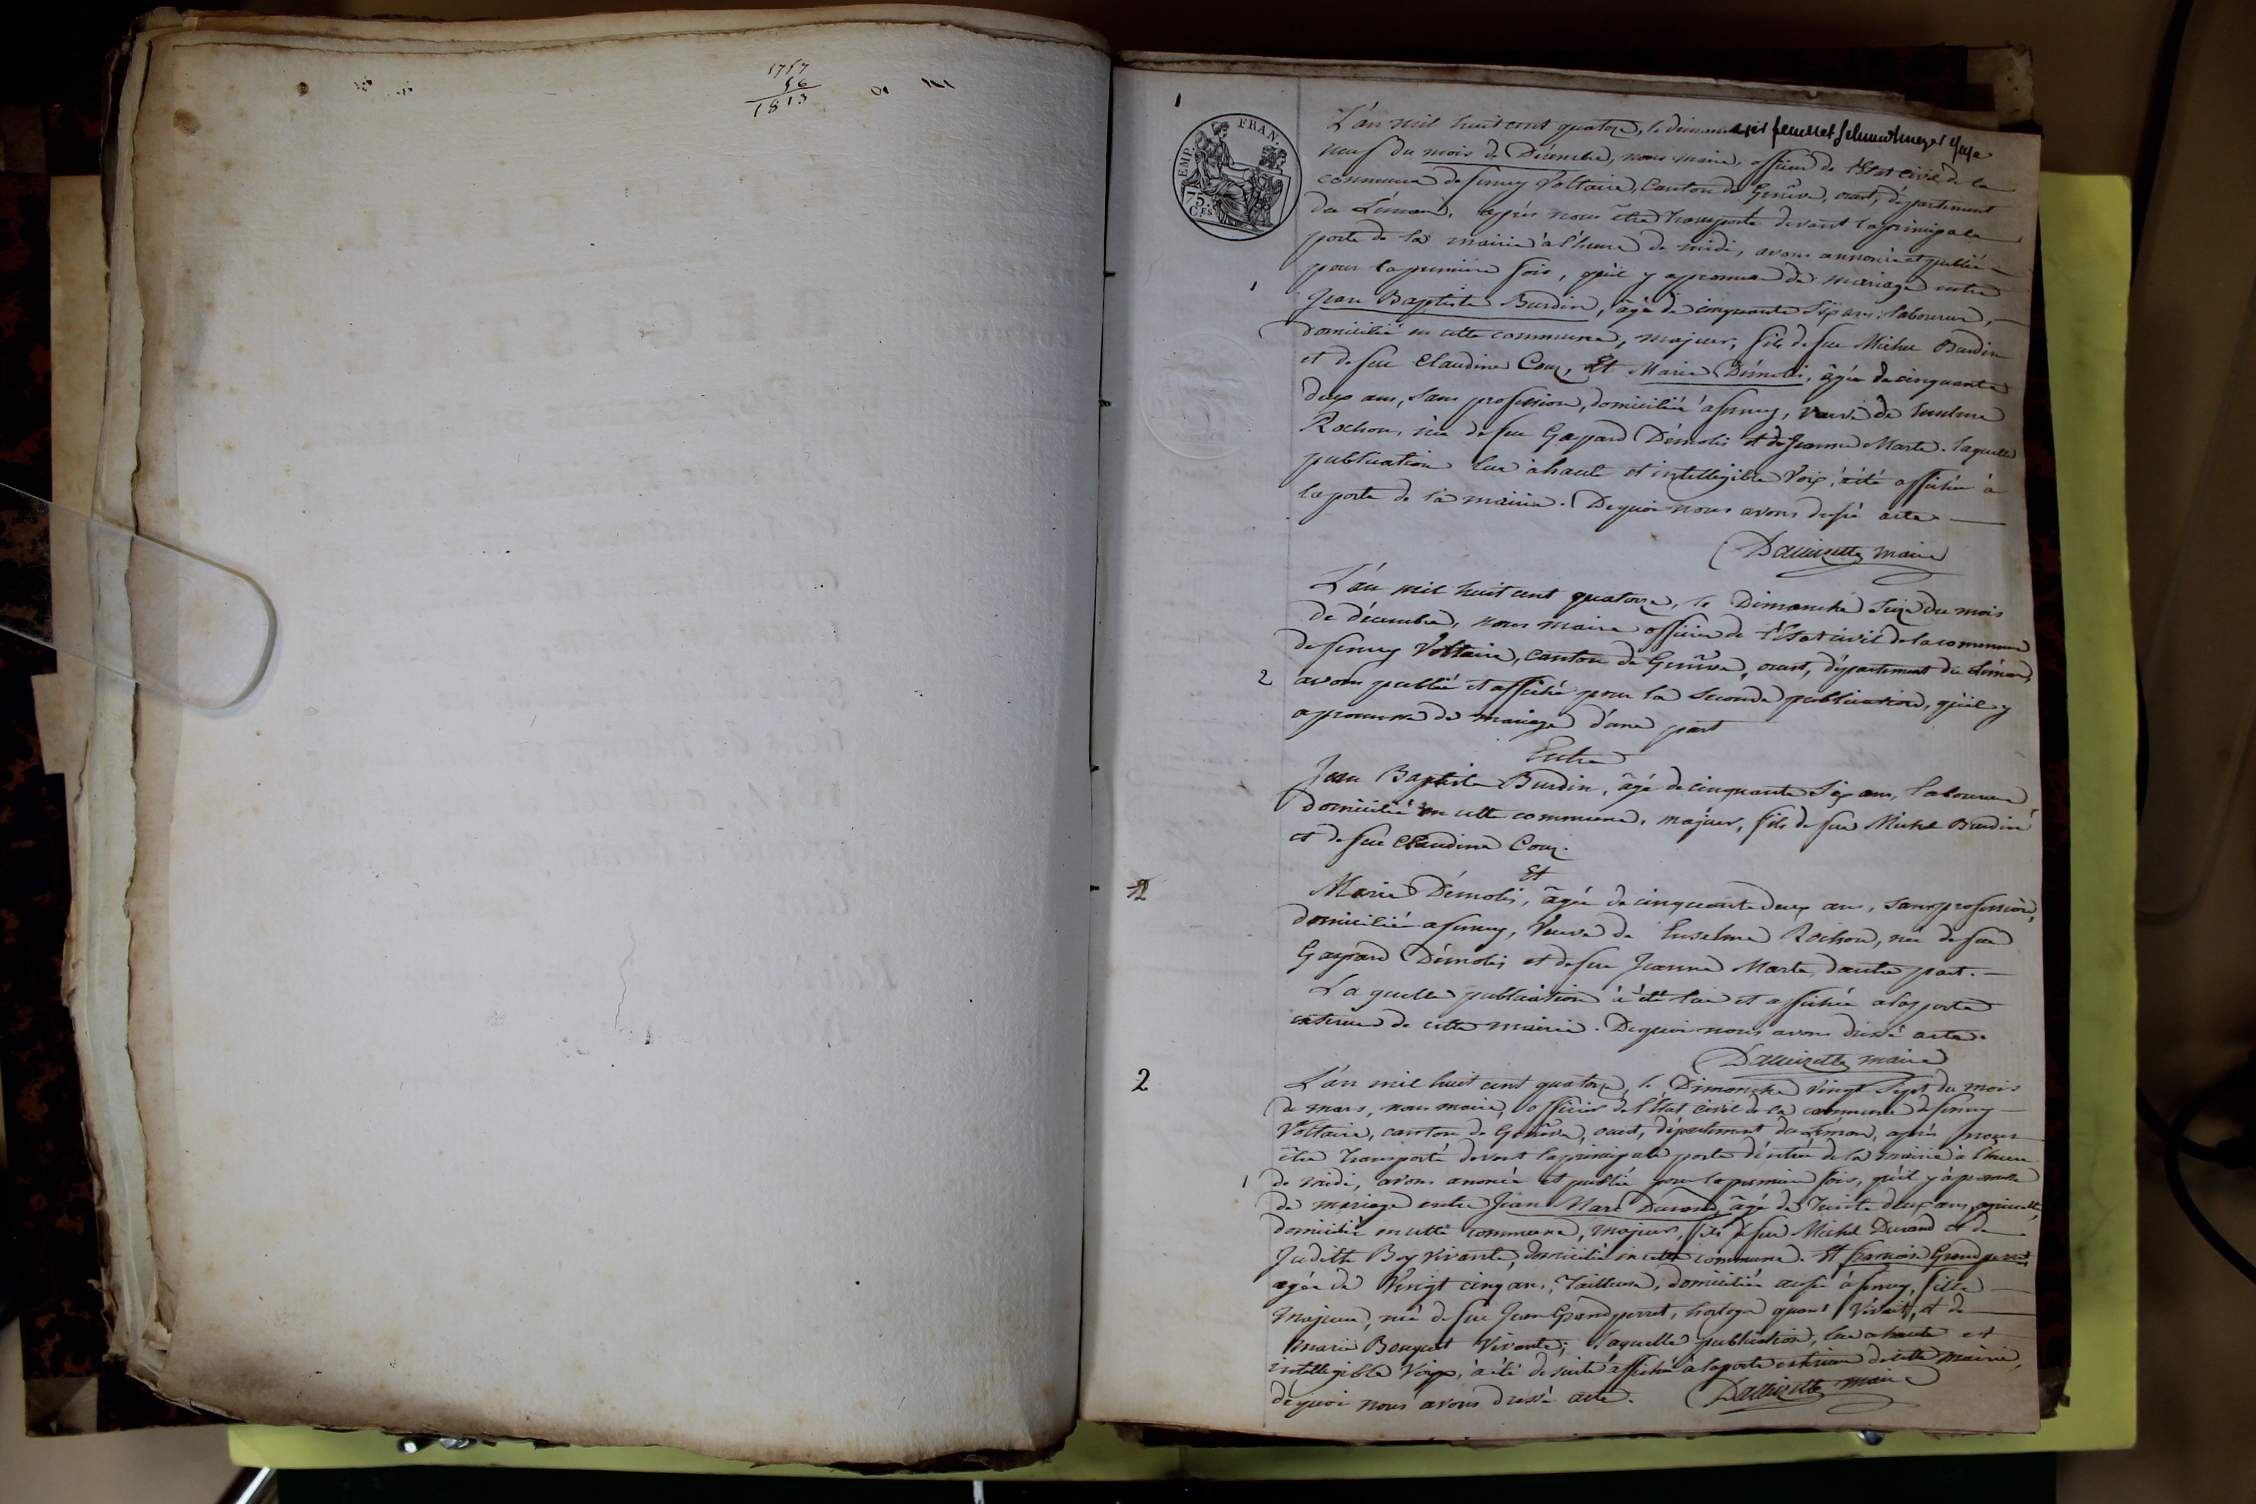 1757
56
1813
1
EMP. FRAN.
75. CES
L'an mil huit cent quatorze, le dimanche
neuf du mois de Décembre, nous maire, officier de l'Etat civil de la
commune de ferney Voltaire, Canton de Genêve, ouest, département
du Léman, après nous être transporté devant la principale
porte de la mairie à l'heure de midi, avons annoncé et publié
pour la première fois, qu'il y a promesse de mariage entre
1
Jean Baptiste Burdin, âgé de cinquante six ans, laboureur,
domicilié en cette commune, majeur, fils de feu Michel Burdin
et de feu Claudine Couz, Et Marie Démolis, âgée de cinquante
deux ans, sans profession, domiciliée à ferney, veuve de Enselme
Rochon, née de feu Gaspard Démolis et de Jeanne Marte. laquelle
publication lue à haute et intelligible Voix, a été affichée à
la porte de la mairie. De quoi nous avons dressé acte.
maire
L'an mil huit cent quatorze, le Dimanche Seize du mois
de décembre, nous maire officier de l'Etat civil de la commune
de ferney Voltaire, canton de Genêve, ouest, département du Léman,
2
avons publié et affiché pour la seconde publication, qu'il y
a promesse de mariage d'une part
Entre
Jean Baptiste Burdin, âgé de cinquante six ans, laboureur
domicilié en cette commune, majeur, fils de feu Michel Burdin
et de feu Claudine Couz.
Et
2
Marie Démolis, âgée de cinquante deux ans, sans profession,
domiciliée a ferney, Veuve de Enselme Rochon, née de feu
Gaspard Démolis et de feu Jeanne Marte, d'autre part.
La quelle publication à été lue et affichée a la porte
exterieure de cette mairie. De quoi nous avons dressé acte.
maire
2
L'an mil huit cent quatorze, le Dimanche vingt sept du mois
de mars, nous maire, officier de l'Etat civil de la commune de ferney
Voltaire, canton de Genêve, ouest, département du Léman, après nous
être transporté devant la principale porte d'entrée de la mairie à l'heure
1
de midi, avons anoncé et publié pour la premiere fois, qu'il y à promesse
de mariage entre Jean Marc Durand, âgé de trente deux ans,
domicilié en cette commune, majeur, fils de feu Michel Durand et de
Judith Boy vivante, domiciliée en cette commune. Et françoise Grandperret
agée de Vingt cinq ans, Tailleuse, domiciliée aussi à ferney, fille
majeure, née de feu Jean Grandperret, horloger quand Vivait, et de
Marie Bouquet Vivante; laquelle publication, lue a haute et
intelligible Voix, a été de suite affichée à la porte exterieure de cette mairie,
de quoi nous avons dressé acte. maire